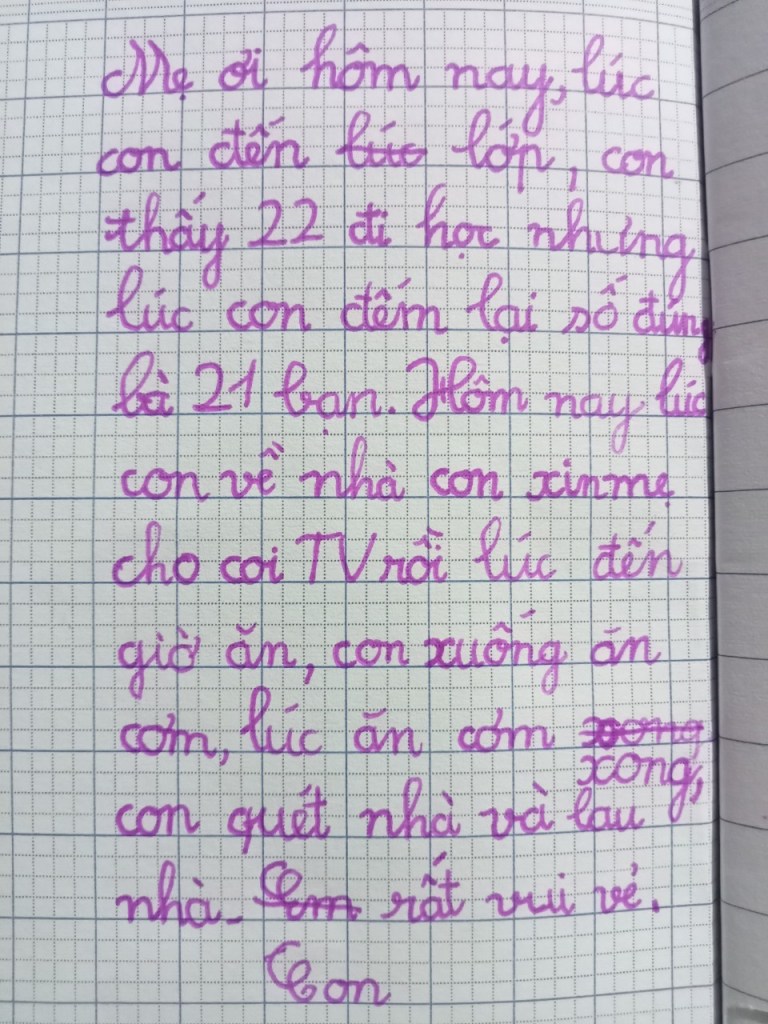 Mẹ ơi hôm nay, lúc
con đến lúc lớp, con
thấy 22 đi học nhưng
lúc con đếm lại số đúng
là 21 bạn. Hôm nay lúc
con về nhà con xin mẹ
cho coi TV rồi lúc đến
giờ ăn, con xuống ăn
cơm, lúc ăn cơm xong
xong,
con quét nhà và lau
nhà. Em rất vui vẻ.
Con